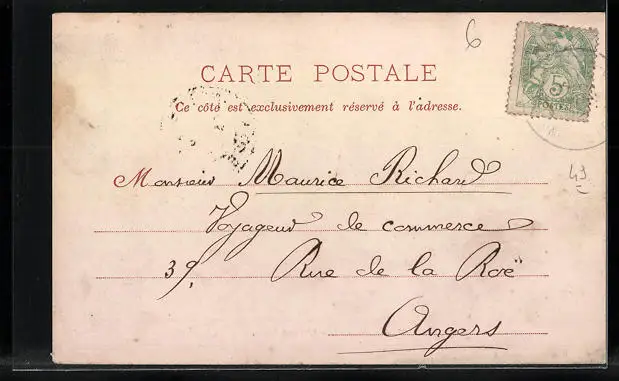 6
CARTE POSTALE
Ce côté est exclusivement réservé à l'adresse.
5
POSTES
43
Monsieur Maurice Richard
Voyageur de commerce
39, Rue de la Roë
Angers